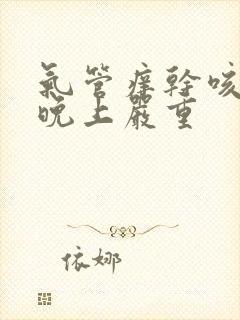 氣管癢幹咳
晚上嚴重
依娜